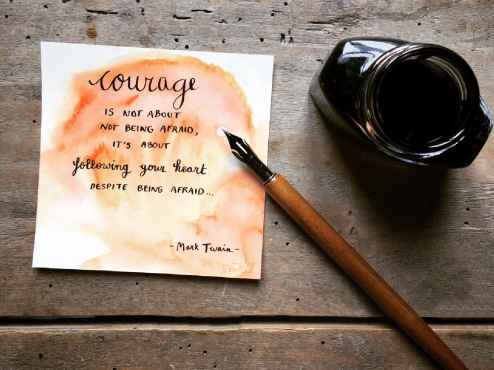 courage
IS NOT ABOUT
NOT BEING AFRAID,
IT'S ABOUT
following your heart
DESPITE BEING AFRAID...
- Mark Twain -